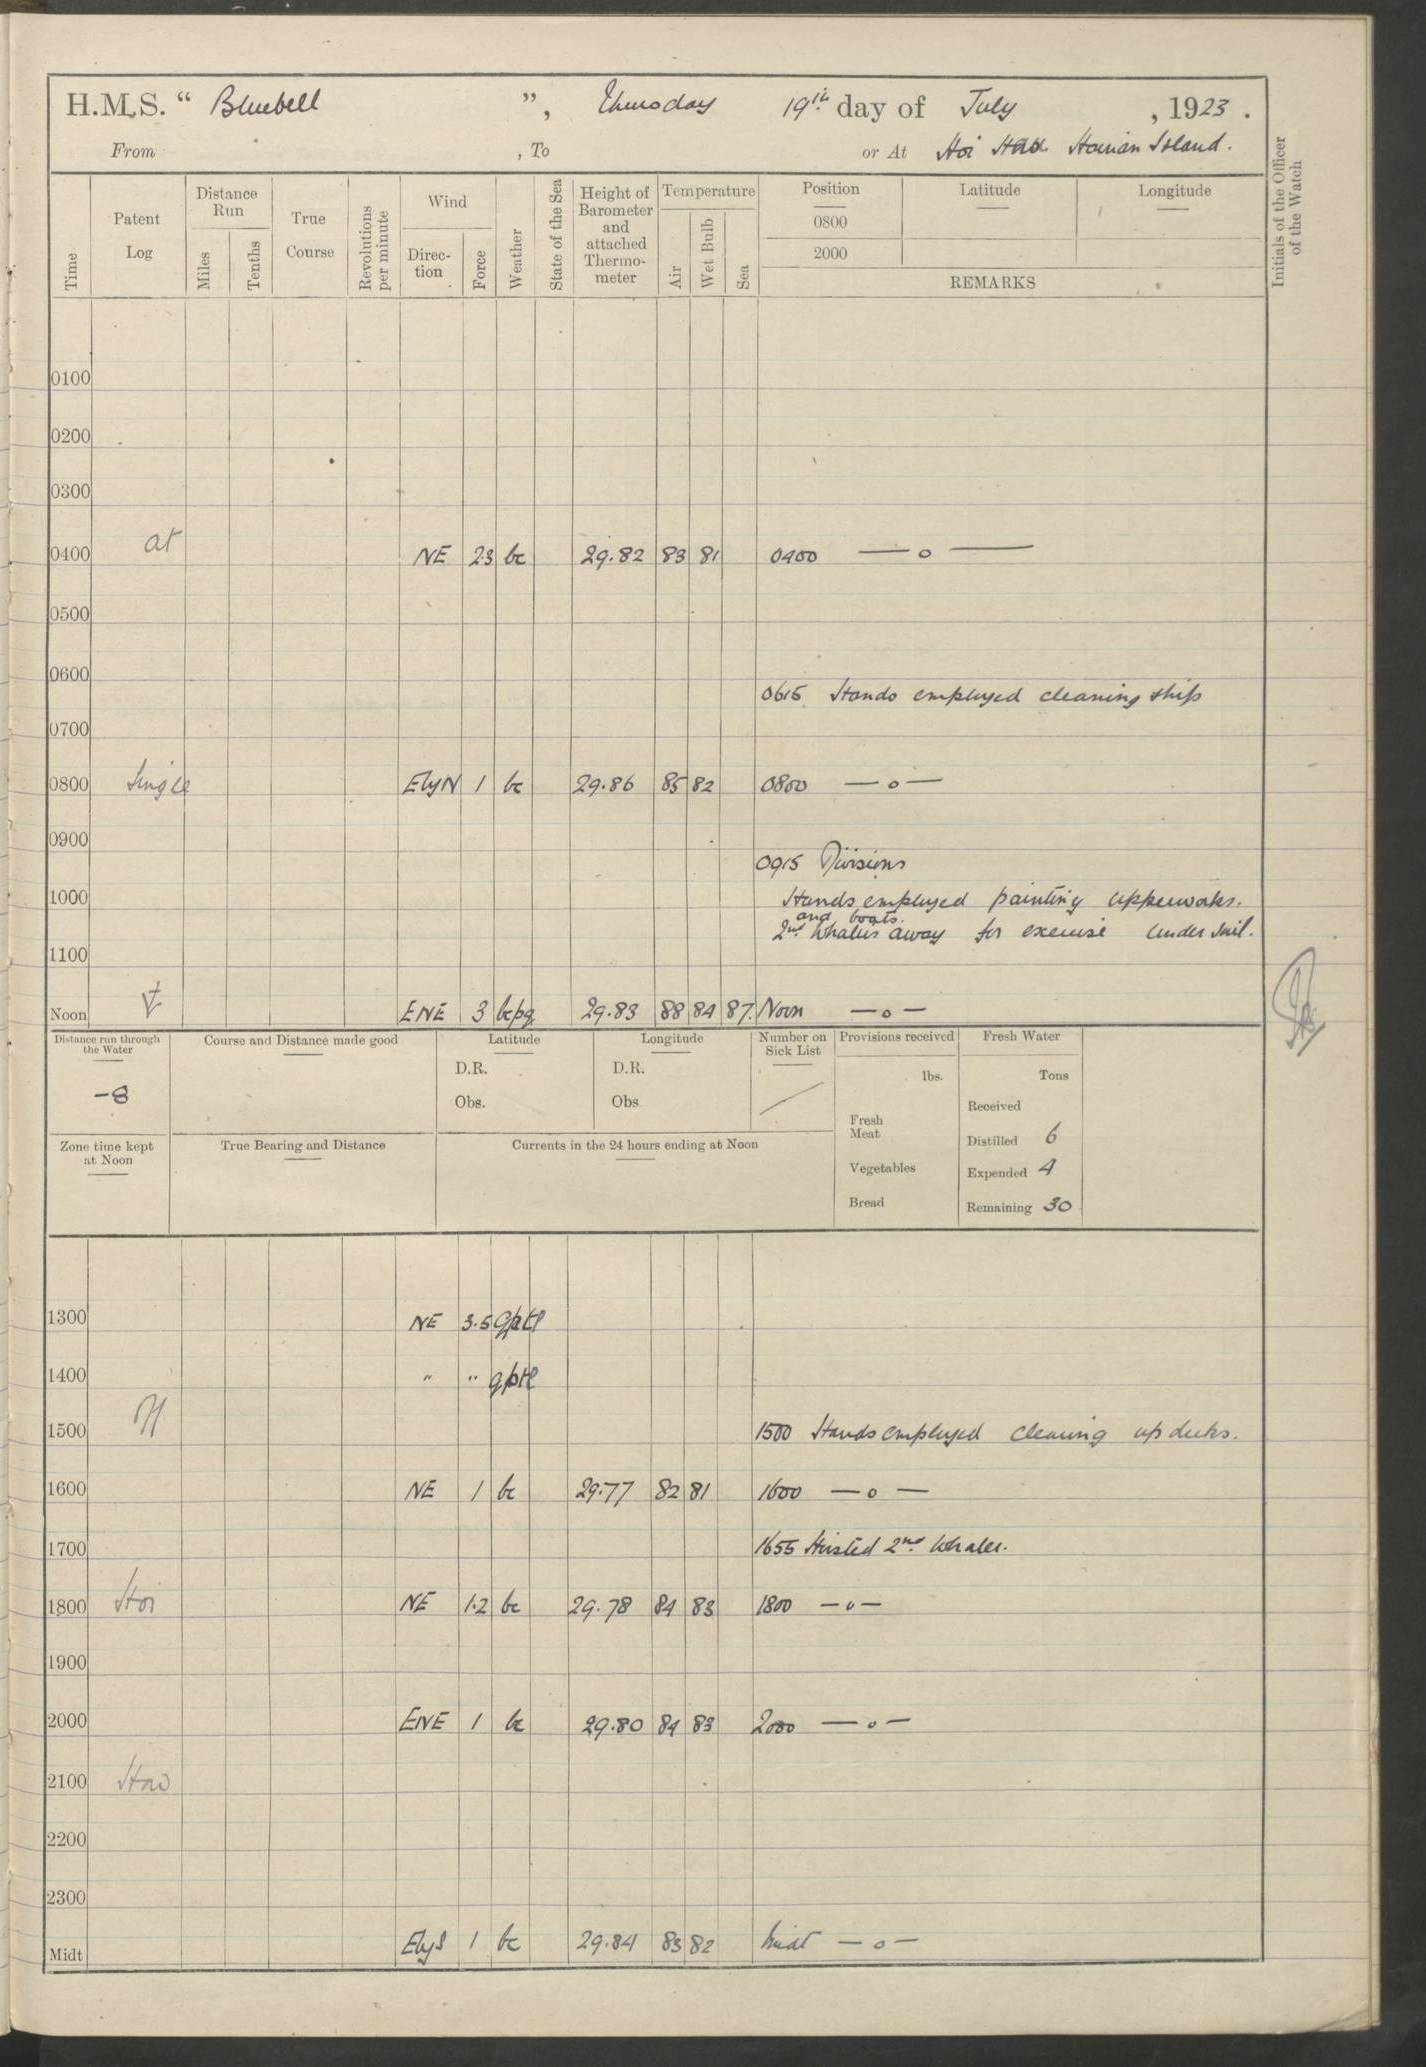 H.M.S. “ Bluebell ”, Thursday 19th day of July , 1923 .
From , To or At Hoi Hao Hainan Island.
Time
Patent Log
Distance Run
Miles
Tenths
True Course
Revolutions per minute
Wind
Direction
Force
Weather
State of the Sea
Height of Barometer and attached Thermometer
Temperature
Air
Wet Bulb
Sea
Position Latitude Longitude
0800
2000
REMARKS
Initials of the Officer of the Watch
0100
0200
0300
0400 at NE 2.3 bc 29.82 83 81 0400 — o —
0500
0600
0615 Hands employed cleaning ship
0700
0800 Single EbyN 1 bc 29.86 85 82 0800 — o —
0900
0915 Divisions
1000 Hands employed painting upperworks.
and boats.
2nd Whalers away for exercise under sail.
1100
Noon ENE 3 bcpq 29.83 88 84 87 Noon — o —
Distance run through the Water
-8
Course and Distance made good
Latitude
D.R.
Obs.
Longitude
D.R.
Obs
Number on Sick List
Provisions received
lbs.
Fresh Meat
Vegetables
Bread
Fresh Water
Tons
Received
Distilled 6
Expended 4
Remaining 30
Zone time kept at Noon
True Bearing and Distance
Currents in the 24 hours ending at Noon
1300 NE 3.5
1400 " "
1500 1500 Hands employed cleaning up decks.
1600 NE 1 bc 29.77 82 81 1600 — o —
1700 1655 Hoisted 2nd Whaler.
1800 Hoi NE 1.2 bc 29.78 84 83 1800 — o —
1900
2000 ENE 1 bc 29.80 84 83 2000 — o —
2100 Hao
2200
2300
Midt EbyS 1 bc 29.84 83 82 Midt — o —